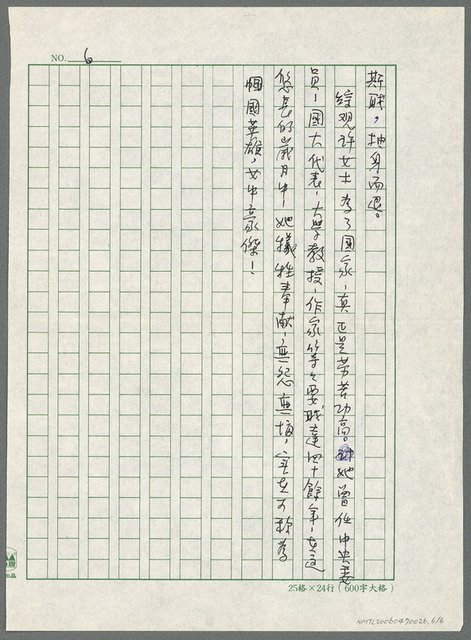 NO. 6
斯職，抽身而退。
綜觀許女士為了國家，真正是勞苦功高。她曾任中央委
員，國大代表，大學教授，作家等等要職達四十餘年，在這
悠長的歲月中，她犧牲奉獻，無怨無悔，實在可稱為
幗國英雄，女中豪傑！
25格×24行（600字大格）
NMTL20060470026_6/6